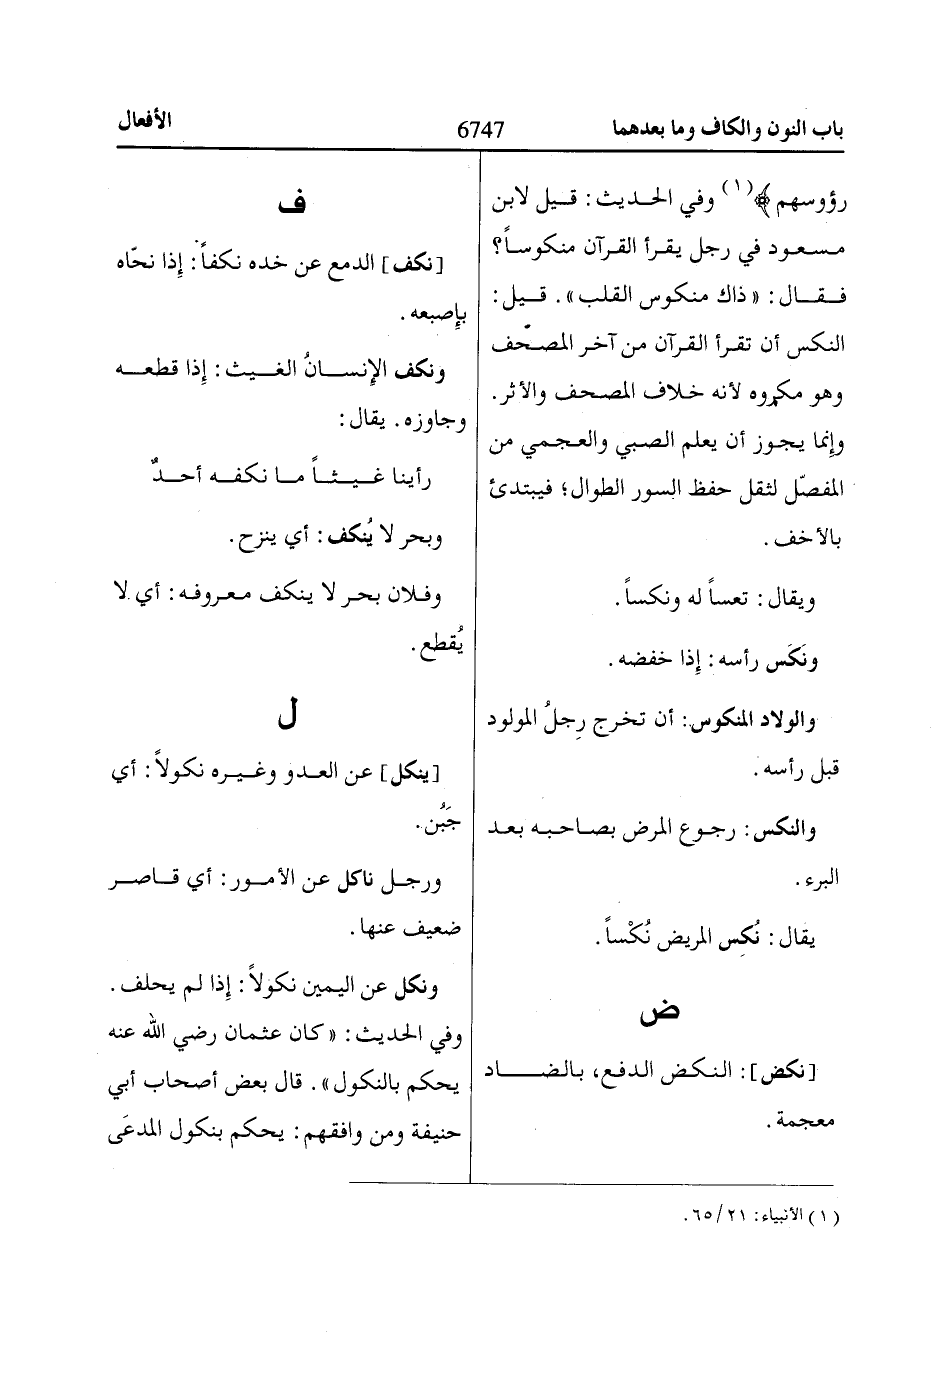 باب النون والكاف وما بعدهما 6747 الأفعال
رؤوسهم﴾(١) وفي الحديث: قيل لابن
مسعود في رجل يقرأ القرآن منكوساً؟
فقال: «ذاك منكوس القلب». قيل:
النكس أن تقرأ القرآن من آخر المصحف
وهو مكروه لأنه خلاف المصحف والأثر.
وإنما يجوز أن يعلم الصبي والعجمي من
المفصّل لثقل حفظ السور الطوال؛ فيبتدئ
بالأخف.
ويقال: تعساً له ونكساً.
ونَكَس رأسه: إذا خفضه.
والولاد المنكوس: أن تخرج رِجلُ المولود
قبل رأسه.
والنكس: رجوع المرض بصاحبه بعد
البرء.
يقال: نُكِس المريض نُكْساً.
ض
[نكض]: النكض الدفع، بالضاد
معجمة.
ف
[نكف] الدمع عن خده نكفاً: إذا نحّاه
بإصبعه.
ونكف الإنسانُ الغيث: إذا قطعه
وجاوزه. يقال:
رأينا غيثاً ما نكفه أحدٌ
وبحر لا يُنكف: أي ينزح.
وفلان بحر لا ينكف معروفه: أي لا
يُقطع.
ل
[ينكل] عن العدو وغيره نكولاً: أي
جَبُن.
ورجل ناكل عن الأمور: أي قاصر
ضعيف عنها.
ونكل عن اليمين نكولاً: إذا لم يحلف.
وفي الحديث: «كان عثمان رضي الله عنه
يحكم بالنكول». قال بعض أصحاب أبي
حنيفة ومن وافقهم: يحكم بنكول المدعَى
(١) الأنبياء: ٢١/ ٦٥.